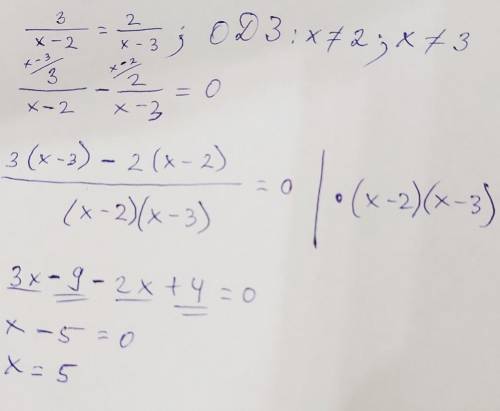 3/(x-2) = 2/(x-3) ; ОДЗ: x≠2; x≠3
x-3/ 3/(x-2) - x-2/ 2/(x-3) = 0
(3(x-3) - 2(x-2))/((x-2)(x-3)) = 0 | •(x-2)(x-3)
3x - 9 - 2x + 4 = 0
x - 5 = 0
x = 5